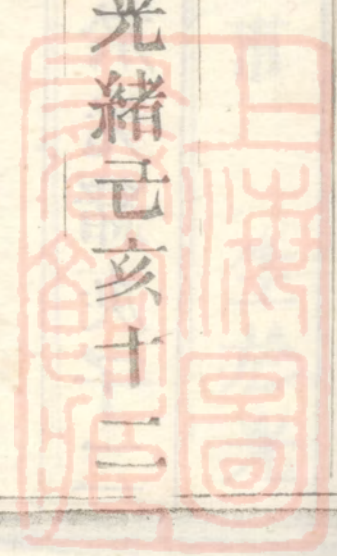 光緒己亥十二
上海圖
書館藏